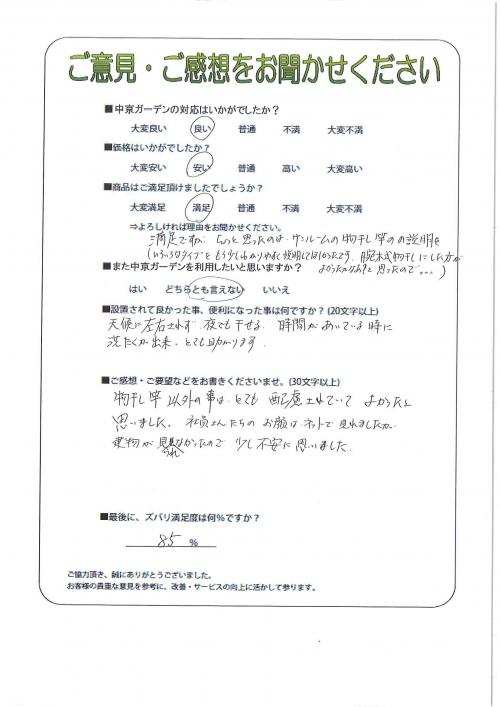 ご意見・ご感想をお聞かせください
■中京ガーデンの対応はいかがでしたか？
大変良い 良い 普通 不満 大変不満
■価格はいかがでしたか？
大変安い 安い 普通 高い 大変高い
■商品はご満足頂けましたでしょうか？
大変満足 満足 普通 不満 大変不満
⇒よろしければ理由をお聞かせください。
満足ですが、ちょっと思ったのは、サンルームの物干し竿のの説明を
(いろいろなタイプ)をもう少しわかりやすく説明してほしかったです。腕木式物干しにした方が
■また中京ガーデンを利用したいと思いますか？ よかったかなあ？と思ったので…。)
はい どちらとも言えない いいえ
■設置されて良かった事、便利になった事は何ですか？(20文字以上)
天候に左右されず、夜でも干せる。時間があいている時に
洗たくが出来、とても助かります。
■ご感想・ご要望などをお書きくださいませ。(30文字以上)
物干し竿以外の事は、とても配慮されていてよかったと
思いました。社員さんたちのお顔はネットで見れましたが、
建物が見られなかったので少し不安に思いました。
■最後に、ズバリ満足度は何％ですか？
85 ％
ご協力頂き、誠にありがとうございました。
お客様の貴重な意見を参考に、改善・サービスの向上に活かして参ります。